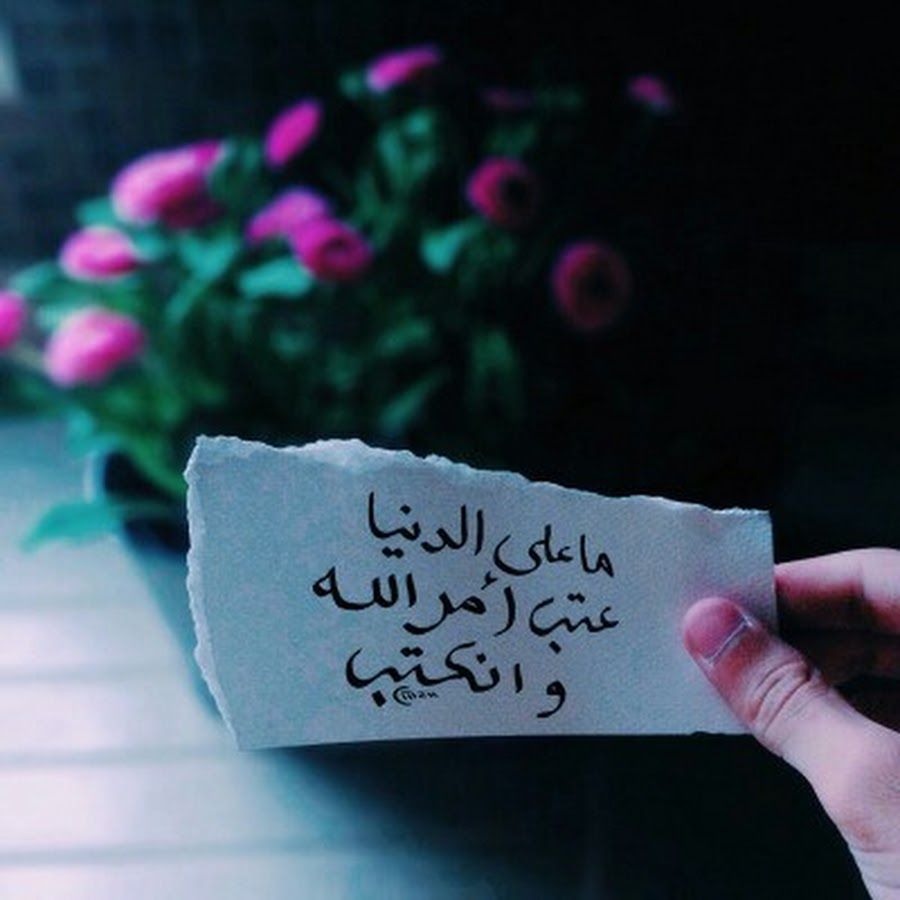 ما على الدنيا
عتب أمر الله
و انكتب